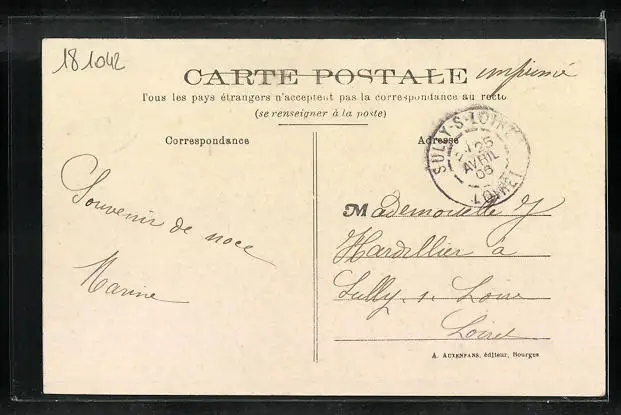 181042
CARTE POSTALE imprimé
Tous les pays étrangers n'acceptent pas la correspondance au recto
(se renseigner à la poste)
Correspondance
Adresse
SULLY-S-LOIRE
25
AVRIL
06
LOIRET
Souvenir de noce
Mademoiselle J
Hardillier à
Sully s. Loire
Loiret
A. AUXENFANS, éditeur, Bourges